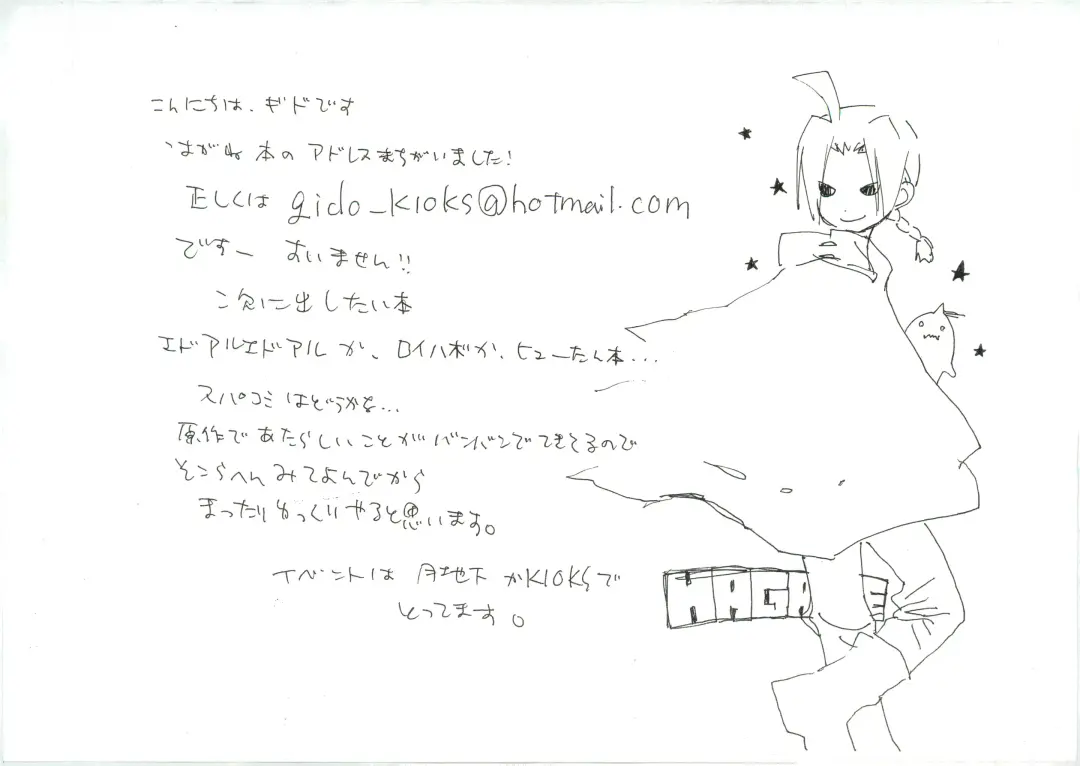 こんにちは、ギドです
はがね本のアドレスまちがいました!
正しくは gido_kloks@hotmail.com
ですー すいません!!
次に出したい本
エドアルエドアルか、ロイハボか、ヒューたん本...
スパコミはどうかな...
原作であたらしいことがバンバンでてきてるので
そこらへんみてよんでから
まったりゆっくりやると思います。
イベントは 月地下かKIOKSで
とってます。
HAGANE